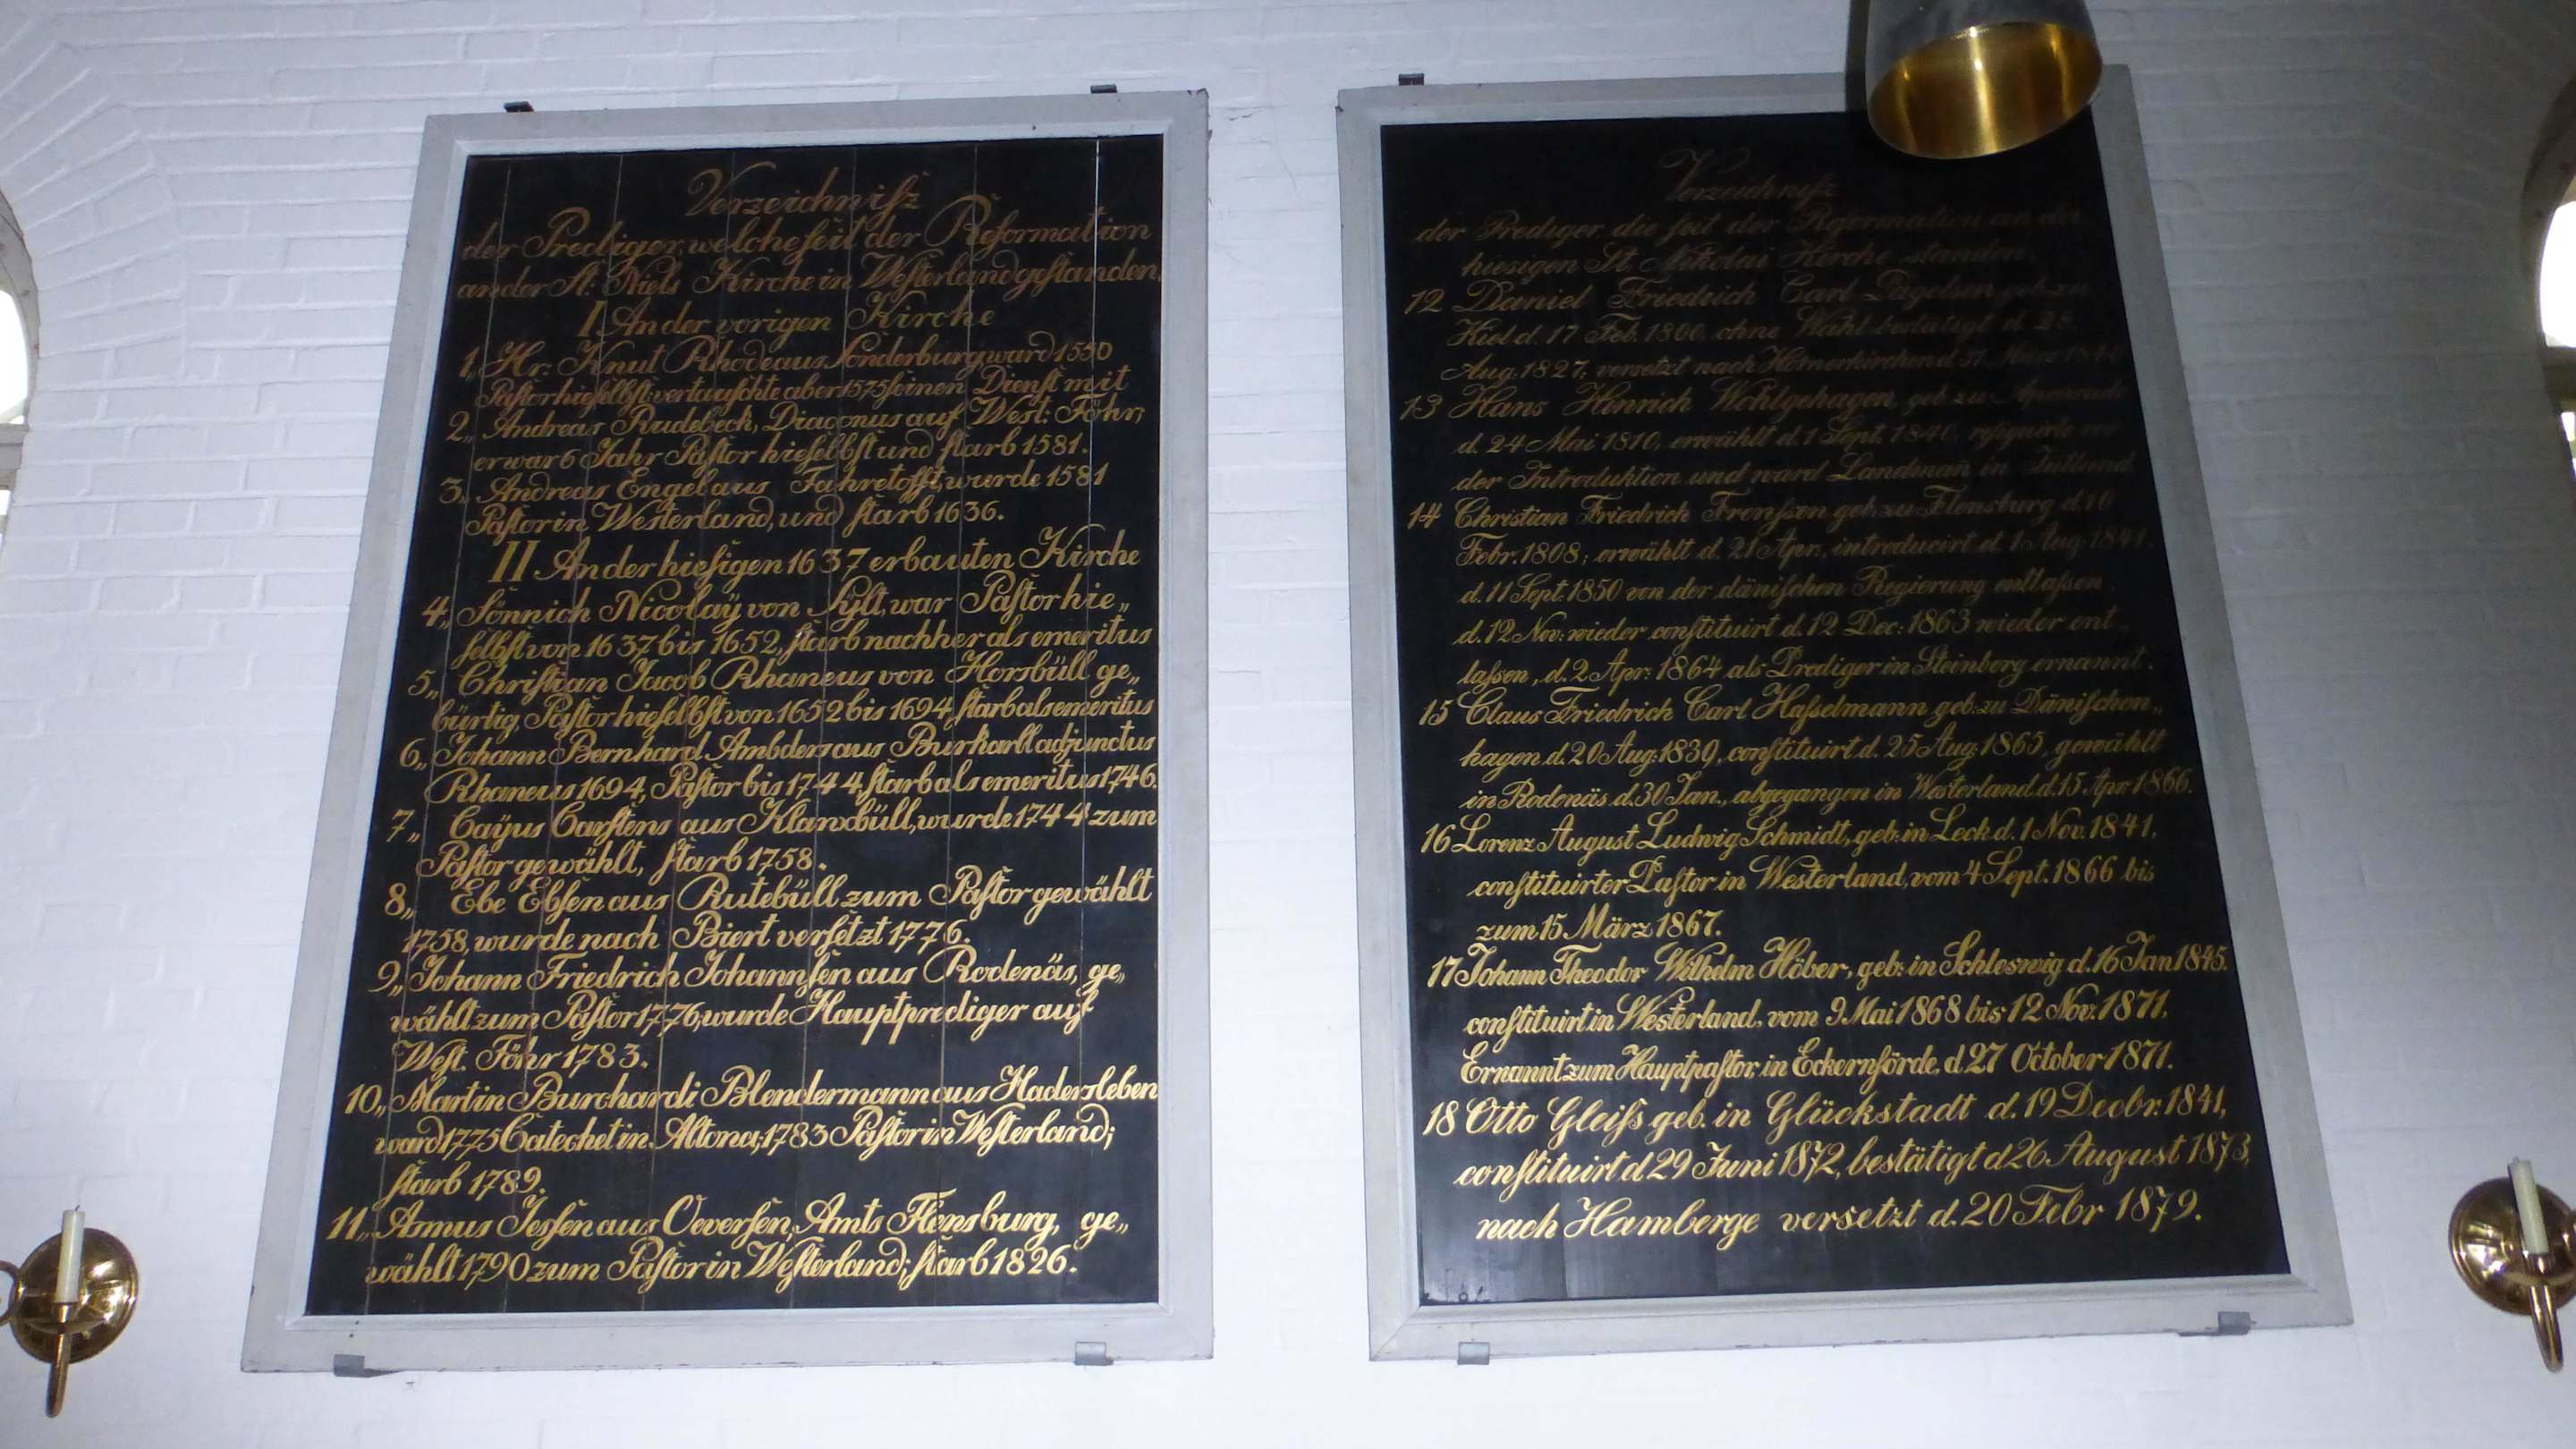 Verzeichniſz
der Prediger, welche ſeit der Reformation
an der St: Niels Kirche in Weſterland geſtanden.
I An der vorigen Kirche
1„ Hr: Knut Rhode aus Sonderburg ward 1550
Paſtor hieſelbſt; vertauſchte aber 1575 ſeinen Dienſt mit
2„ Andreas Rudebeck, Diaconus auf West: Föhr;
er war 6 Jahr Paſtor hieſelbſt und ſtarb 1581.
3„ Andreas Engel aus Fahretofft, wurde 1581
Paſtor in Westerland, und ſtarb 1636.
II An der hieſigen 1637 erbauten Kirche
4„ Sönnich Nicolaÿ von Sÿlt, war Paſtor hie„
ſelbſt von 1637 bis 1652, ſtarb nachher als emeritus
5„ Chriſtian Jacob Rhaneus von Horsbüll ge„
bürtig, Paſtor hieſelbſt von 1652 bis 1694, ſtarb als emeritus
6„ Johann Bernhard Ambders aus Burkarll adjunctus
Rhaneus 1694, Paſtor bis 1744, ſtarb als emeritus 1746.
7„ Caÿus Carſtens aus Klanxbüll, wurde 1744 zum
Paſtor gewählt, ſtarb 1758.
8„ Ebe Ebſen aus Rutebüll zum Paſtor gewählt
1758, wurde nach Biert verſetzt 1776.
9„ Johann Friedrich Johannſen aus Rodenäs, ge„
wählt zum Paſtor 1776, wurde Hauptprediger auf
Weſt. Föhr 1783.
10„ Martin Burchardi Blendermann aus Hadersleben
ward 1775 Catechet in Altona; 1783 Paſtor in Weſterland;
ſtarb 1789.
11„ Asmus Jesſen aus Oeverſen, Amts Flensburg, ge„
wählt 1790 zum Paſtor in Weſterland; ſtarb 1826.
Verzeichniſz
der Prediger die ſeit der Reformation an der
hiesigen St Nikolai Kirche standen.
12 Daniel Friedrich Carl geb: zu
Kiel d. 17 Feb. 1800, ohne Wahl bestätigt d. 28.
Aug. 1827, versetzt nach Hörnerkirchen d. März
13 Hans Hinrich Wohlgehagen geb. zu Apenrade
d. 24 Mai 1810, erwählt d. 1 Sept. 1840, reſignirte vor
der Introduktion und ward Landman̄ in Jütland.
14 Christian Friedrich Frenſsen geb. zu Flensburg d. 10
Febr. 1808; erwählt d. 21 Apr., introducirt d. 1 Aug. 1841.
d. 11 Sept. 1850 von der däniſchen Regierung entlaſsen.
d. 12 Nov: wieder conſtituirt d. 12 Dec: 1863 wieder ent„
laſsen, d. 2 Apr: 1864 als Prediger in Steinberg ernannt.
15 Claus Friedrich Carl Haſselmann geb: zu Däniſchen„
hagen d. 20 Aug: 1839, conſtituirt d. 25 Aug: 1865, gewählt
in Rodenäs d. 30 Jan., abgegangen in Westerland d. 15 Apr: 1866.
16 Lorenz August Ludwig Schmidt, geb: in Leck d. 1 Nov. 1841,
conſtituirter Paſtor in Westerland, vom 4 Sept. 1866 bis
zum 15 März 1867.
17 Johann Theodor Wilhelm Höber, geb: in Schleswig d. 16 Jan 1845.
conſtituirt in Westerland, vom 9 Mai 1868 bis 12 Nov. 1871,
Ernannt zum Hauptpaſtor, in Eckernförde, d. 27 October 1871.
18 Otto Gleiſs geb. in Glückstadt d. 19 Decbr. 1841,
conſtituirt d 29 Juni 1872, bestätigt d 26 August 1873,
nach Hamberge versetzt d. 20 Febr 1879.